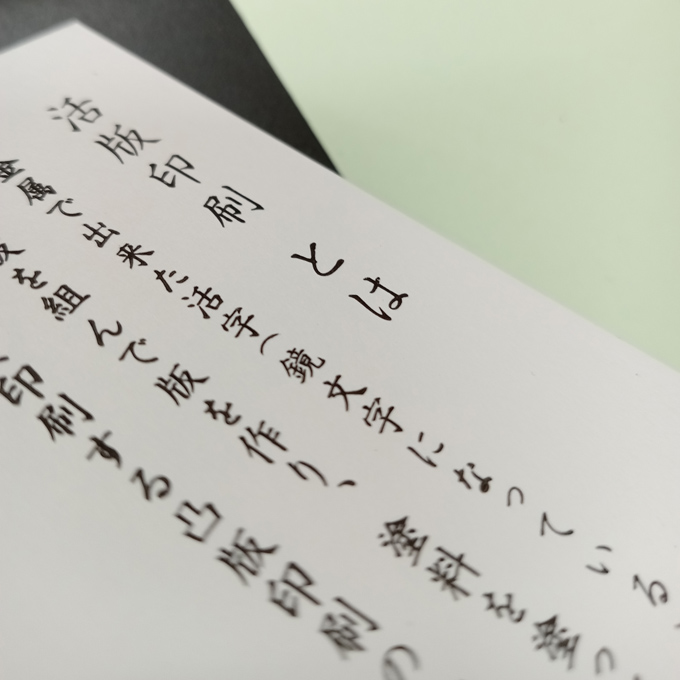 活版印刷とは
金属で出来た活字(鏡文字になっている
を組んで版を作り、塗料を塗っ
印刷する凸版印刷の